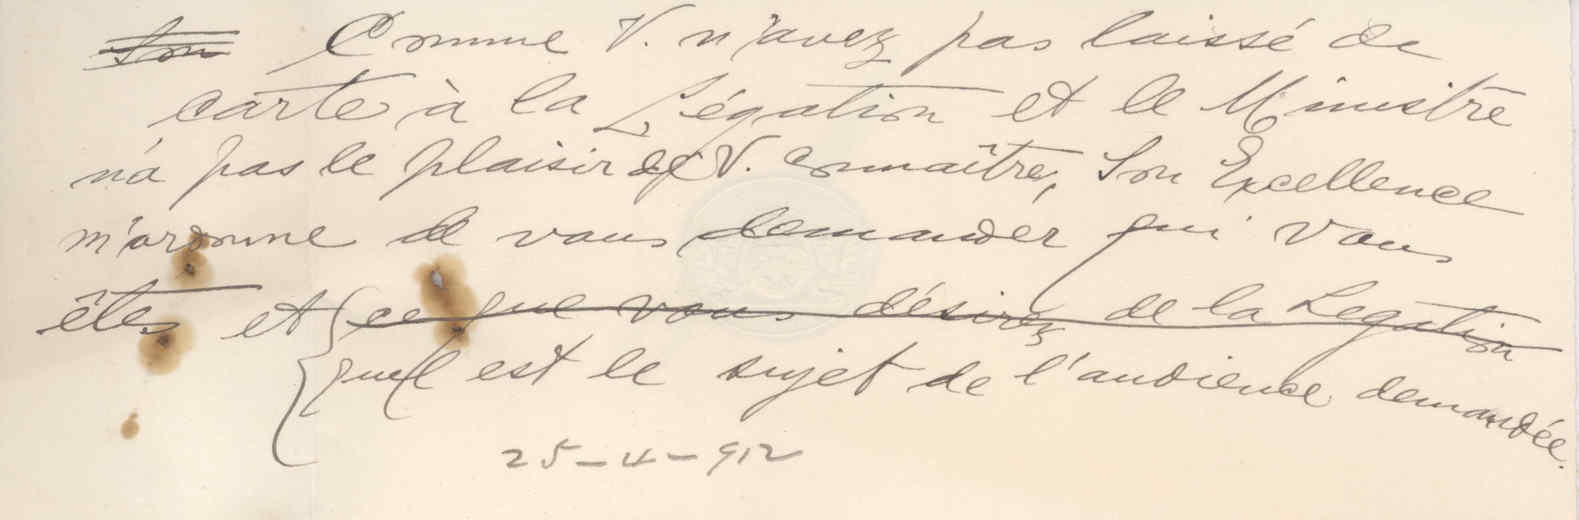 Son Comme V. n'avez pas laissé de
carte à la Légation et le Ministre
n'a pas le plaisir de V. connaître, Son Excellence
m'ordonne de vous demander qui vous
êtes et ce que vous désirez de la Legation
quel est le sujet de l'audience demandée.
25-4-912